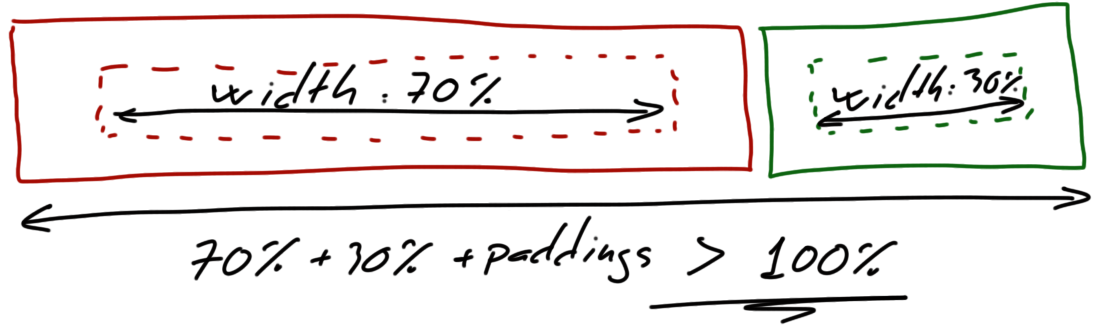 width: 70%
width: 30%
70% + 30% + paddings > 100%